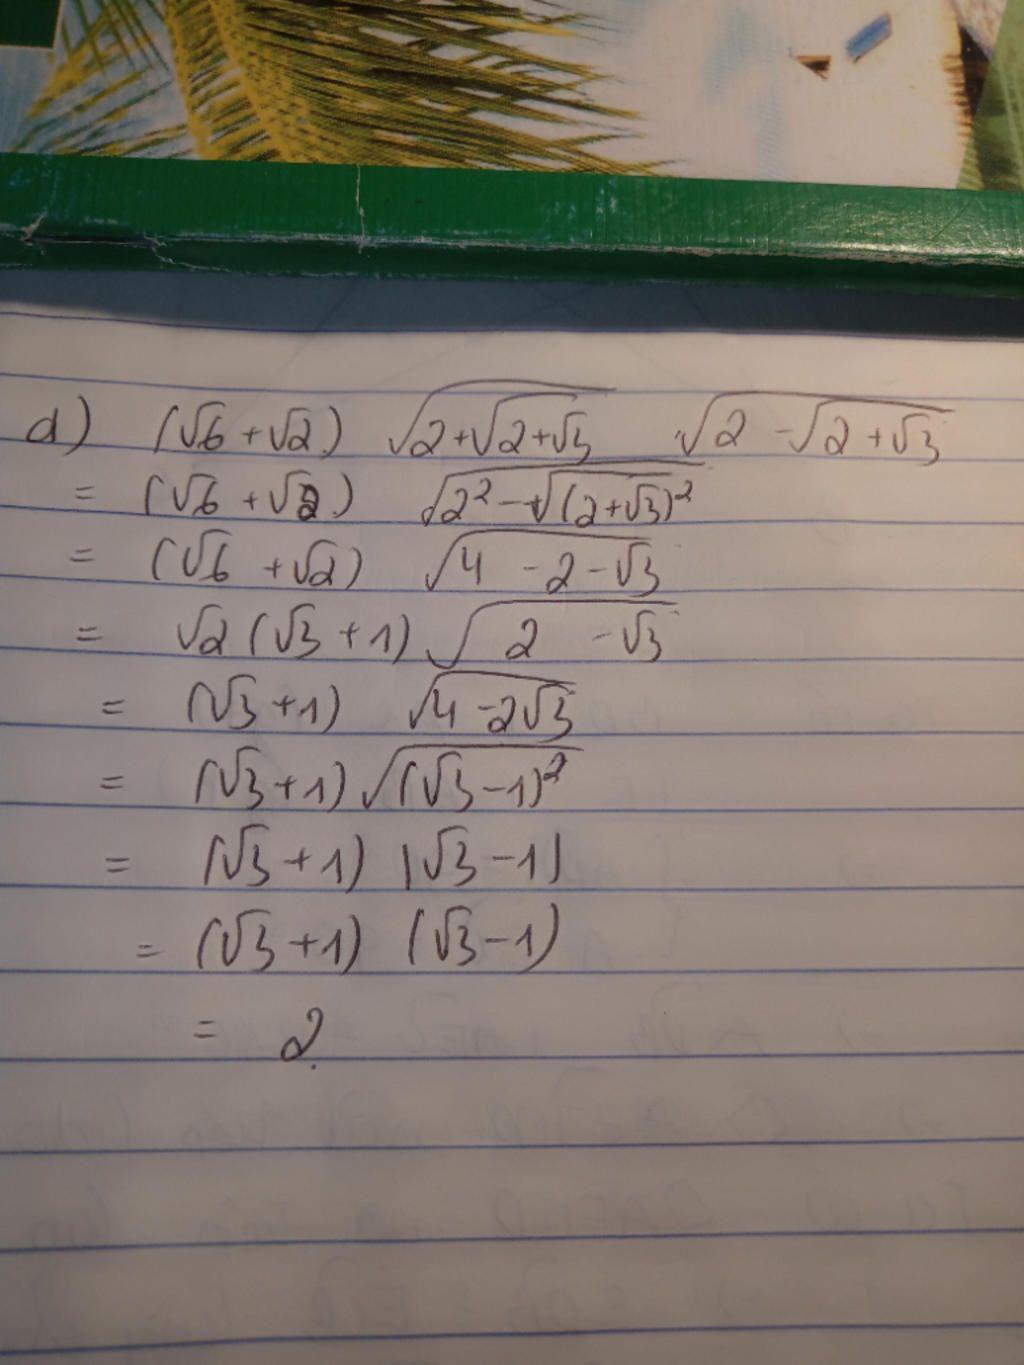 d) (√6 + √2) √(2+√(2+√3)) √(2 - √(2 + √3))
= (√6 + √2) √(2² - √(2+√3)²)
= (√6 + √2) √(4 - 2 - √3)
= √2 (√3 + 1) √(2 - √3)
= (√3 + 1) √(4 - 2√3)
= (√3 + 1) √((√3 - 1)²)
= (√3 + 1) |√3 - 1|
= (√3 + 1) (√3 - 1)
= 2.